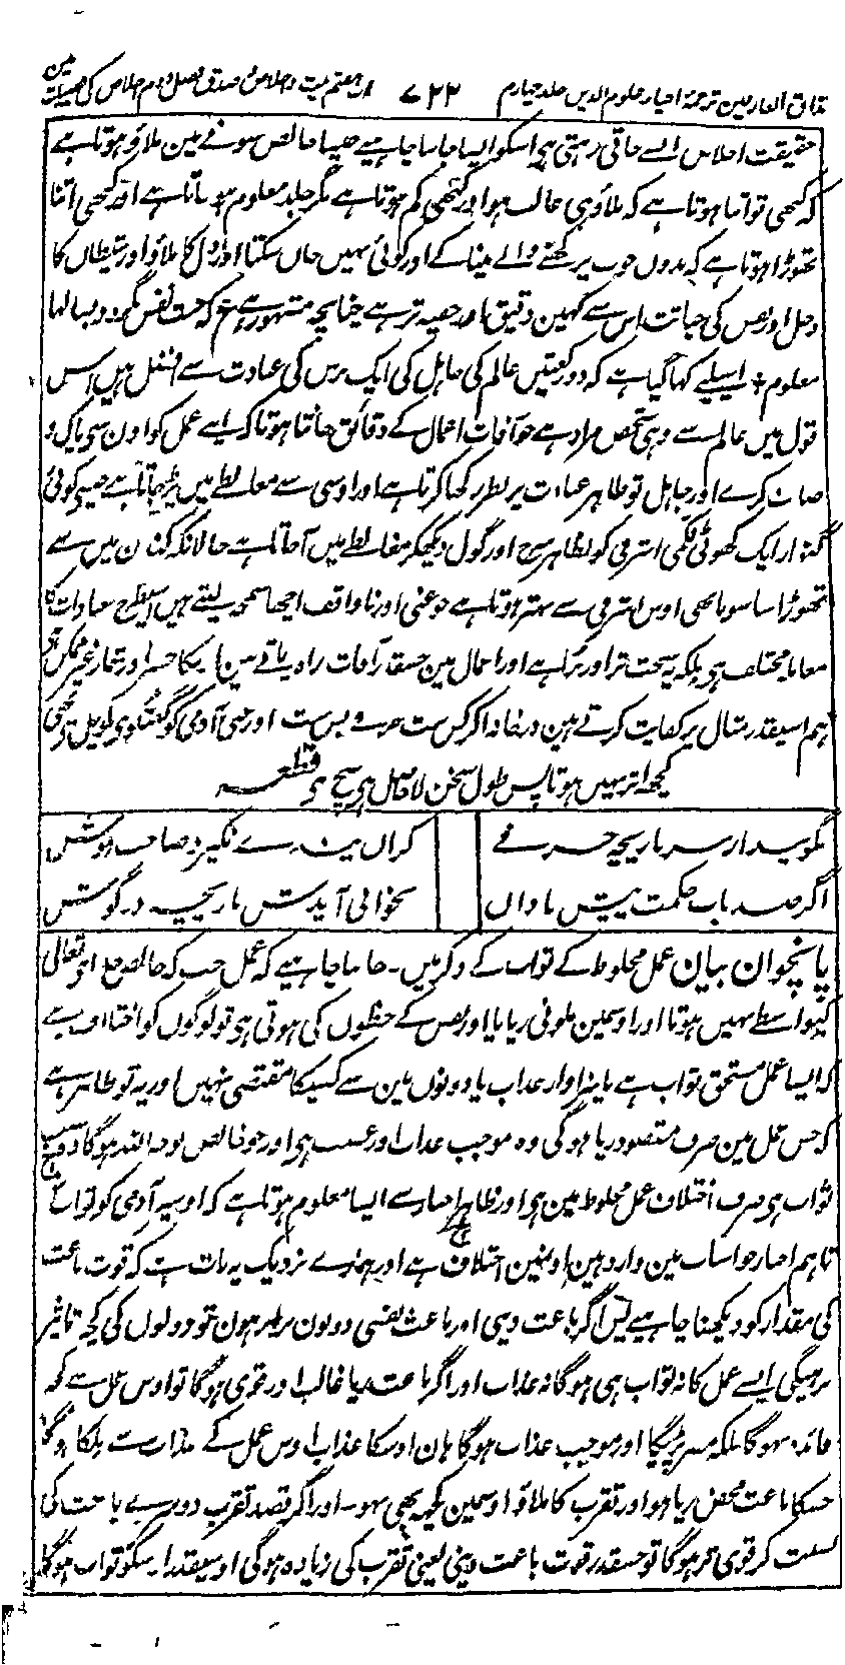 مذاق العارفین ترجمۂ احیاء علوم الدین جلد چہارم ۷۲۲ باب ہفتم نیت و اخلاص و صدق فصل دوم اخلاص کی فضیلت مین
حقیقت اخلاص ایسے جاتی رہتی ہی اسکو ایسا جاننا چاہیے جیسا خالص سونے مین ملاؤ ہوتا ہے
کہ کبھی تو اتنا ہوتا ہے کہ ملاؤ ہی غالب ہو اور کبھی کم ہوتا ہے مگر جلد معلوم ہو جاتا ہے اور کبھی اتنا
تھوڑا ہوتا ہے کہ بدون خوب پرکھنے والے بینا کے اور کوئی نہیں جان سکتا اور دل کا ملاؤ اور شیطان کا
دخل اور نفس کی خباثت اس سے کہین دقیق اور خفیہ تر ہے چنانچہ مشہور ہے ع کہ خبث نفس نگردد بسالہا
معلوم + اسیلیے کہا گیا ہے کہ دو رکعتیں عالم کی جاہل کی ایک برس کی عبادت سے افضل ہیں اس
قول میں عالم سے وہی شخص مراد ہے جو آفات اعمال کے دقائق جانتا ہو تاکہ اپنے عمل کو اون سی پاک و
صاف کرے اور جاہل تو ظاہر عبادت پر نظر رکھا کرتا ہے اور اوسی سے مغالطہ میں پڑ جاتا ہے جیسے کوئی
گنوار ایک کھوٹی نکمی اشرفی کو بظاہر سرخ اور گول دیکھکر مغالطہ میں آ جاتا ہے حالانکہ کندن میں سے
تھوڑا سا سونا بھی اوس اشرفی سے بہتر ہوتا ہے جو غبی اور ناواقف اچھا سمجھ لیتے ہیں اسیطرح عبادات کا
معاملہ مختلف ہی بلکہ یہ سخت تر اور بڑا ہے اور اعمال مین جسقدر آفات راہ پاتے ہین انکا حصر اور شمار غیر ممکن ہے
ہم اسیقدر مثال پر کفایت کرتے ہین در خانہ اگر کس ست حرفے بس ست اور غبی آدمی کو گفتگوی طویل بھی
کچھ اثر نہیں ہوتا پس طول سخن لاحاصل ہی سچ ہی قطعہ
نگویند از سر بازیچہ حرفے کزاں پندے نگیرد صاحب ہوش
اگر صد باب حکمت پیش ناداں بخوانی آیدش بازیچہ در گوش
پانچواں بیان عمل مخلوط کے ثواب کے ذکر میں۔ جاننا چاہیے کہ عمل جب کہ خالص اللہ تعالی
کیواسطے نہیں ہوتا اور اوسمین ملونی ریا یا اور نفس کے حظوں کی ہوتی ہی تو لوگوں کو اختلاف ہے
کہ ایسا عمل مستحق ثواب ہے یا سزاوار عذاب یا دونوں مین سے کسیکا مقتضی نہیں اور یہ تو ظاہر ہے
کہ جس عمل مین صرف مقصود ریا ہوگی وہ موجب عذاب اور غضب ہی اور جو خالص لوجہ اللہ ہوگا وہ سبب
ثواب ہی صرف اختلاف عمل مخلوط مین ہی اور ظاہر اخبار سے ایسا معلوم ہوتا ہے کہ اوسپر آدمی کو ثواب
تاہم اخبار جو اس باب مین وارد ہین اونہین اختلاف ہے اور ہمارے نزدیک یہ بات ہے کہ قوت باعث
کی مقدار کو دیکھنا چاہیے پس اگر باعث دینی اور باعث نفسی دونون برابر ہون تو دونوں کی کچھ تاثیر
نرہیگی ایسے عمل کا نہ ثواب ہی ہوگا نہ عذاب اور اگر باعث ریا غالب اور قوی ہوگا تو اوس عمل سے کچھ
فائدہ نہوگا بلکہ ضرر پڑیگا اور موجب عذاب ہوگا ہان اوسکا عذاب اوس عمل کے عذاب سے ہلکا ہوگا
جسکا باعث محض ریا ہو اور تقرب کا ملاؤ اوسمین کچھ بھی نہو۔ اور اگر قصد تقرب دوسرے باعث کی
نسبت کر قوی تر ہوگا تو جسقدر قوت باعث دینی یعنی تقرب کی زیادہ ہوگی اوسیقدر اسکو ثواب ہوگا